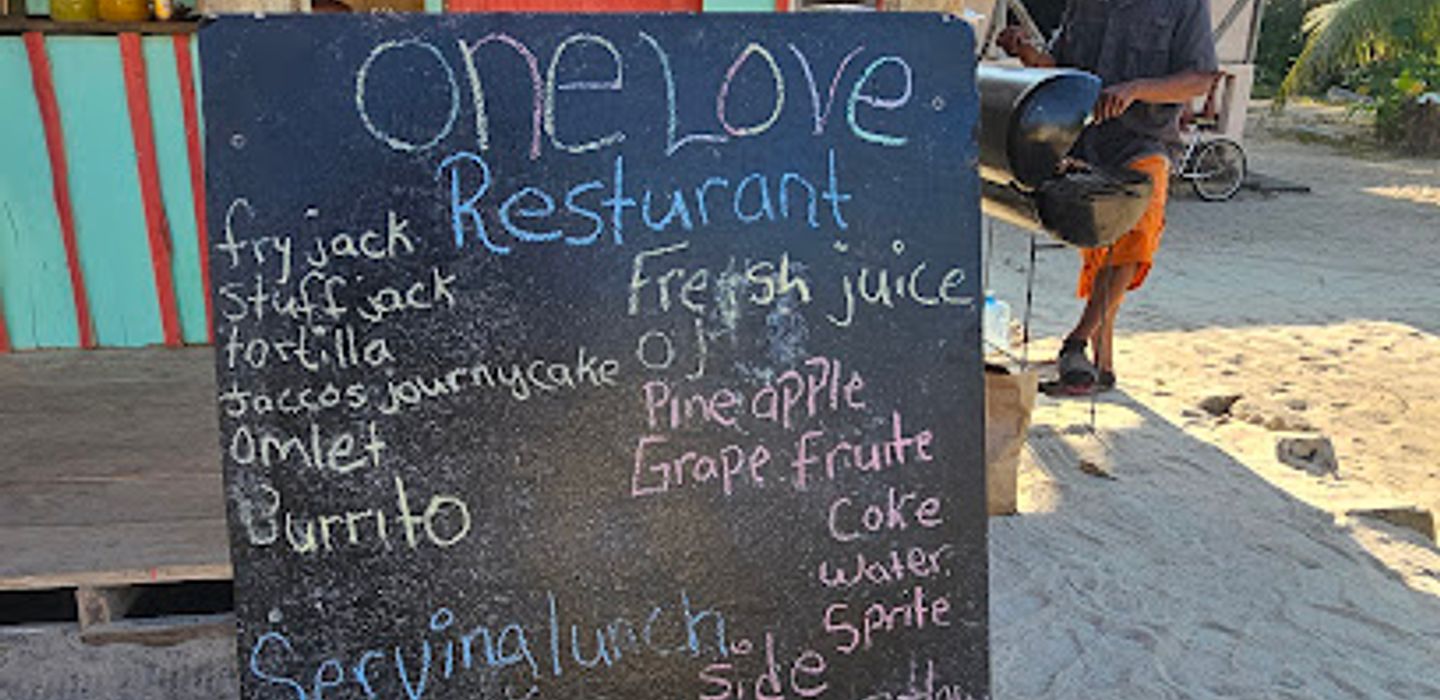 one Love
Resturant
fry jack
stuff jack
tortilla
taccos journycake
omlet
Burrito
Fresh juice
OJ
Pineapple
Grape fruite
Coke
water
Sprite
Serving lunch
Side